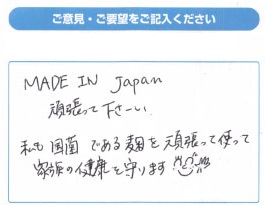 ご意見・ご要望をご記入ください
MADE IN Japan
頑張って下さーい
私も国菌である麹を頑張って使って
家族の健康を守ります